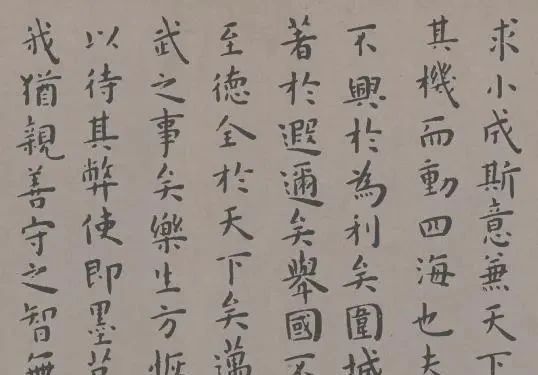 求小成斯意兼天下
其機而動四海也夫
不興於為利矣圍城
著於遐邇矣舉國不
至德全於天下矣邁
武之事矣樂生方恢
以待其弊使即墨莒
我猶親善守之智無